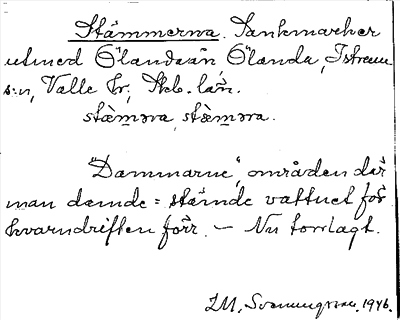 Stämmerna. Sankmarker
utmed Ölandaån, Ölanda, Istrum
s:n, Valle hr; Skb. län.
stæmərα, stæmərα.
"Dammarne", områden där
man damde = stämde vattnet för
kvarndriften förr. — Nu torrlagt.
IM, Svenungsson. 1946.